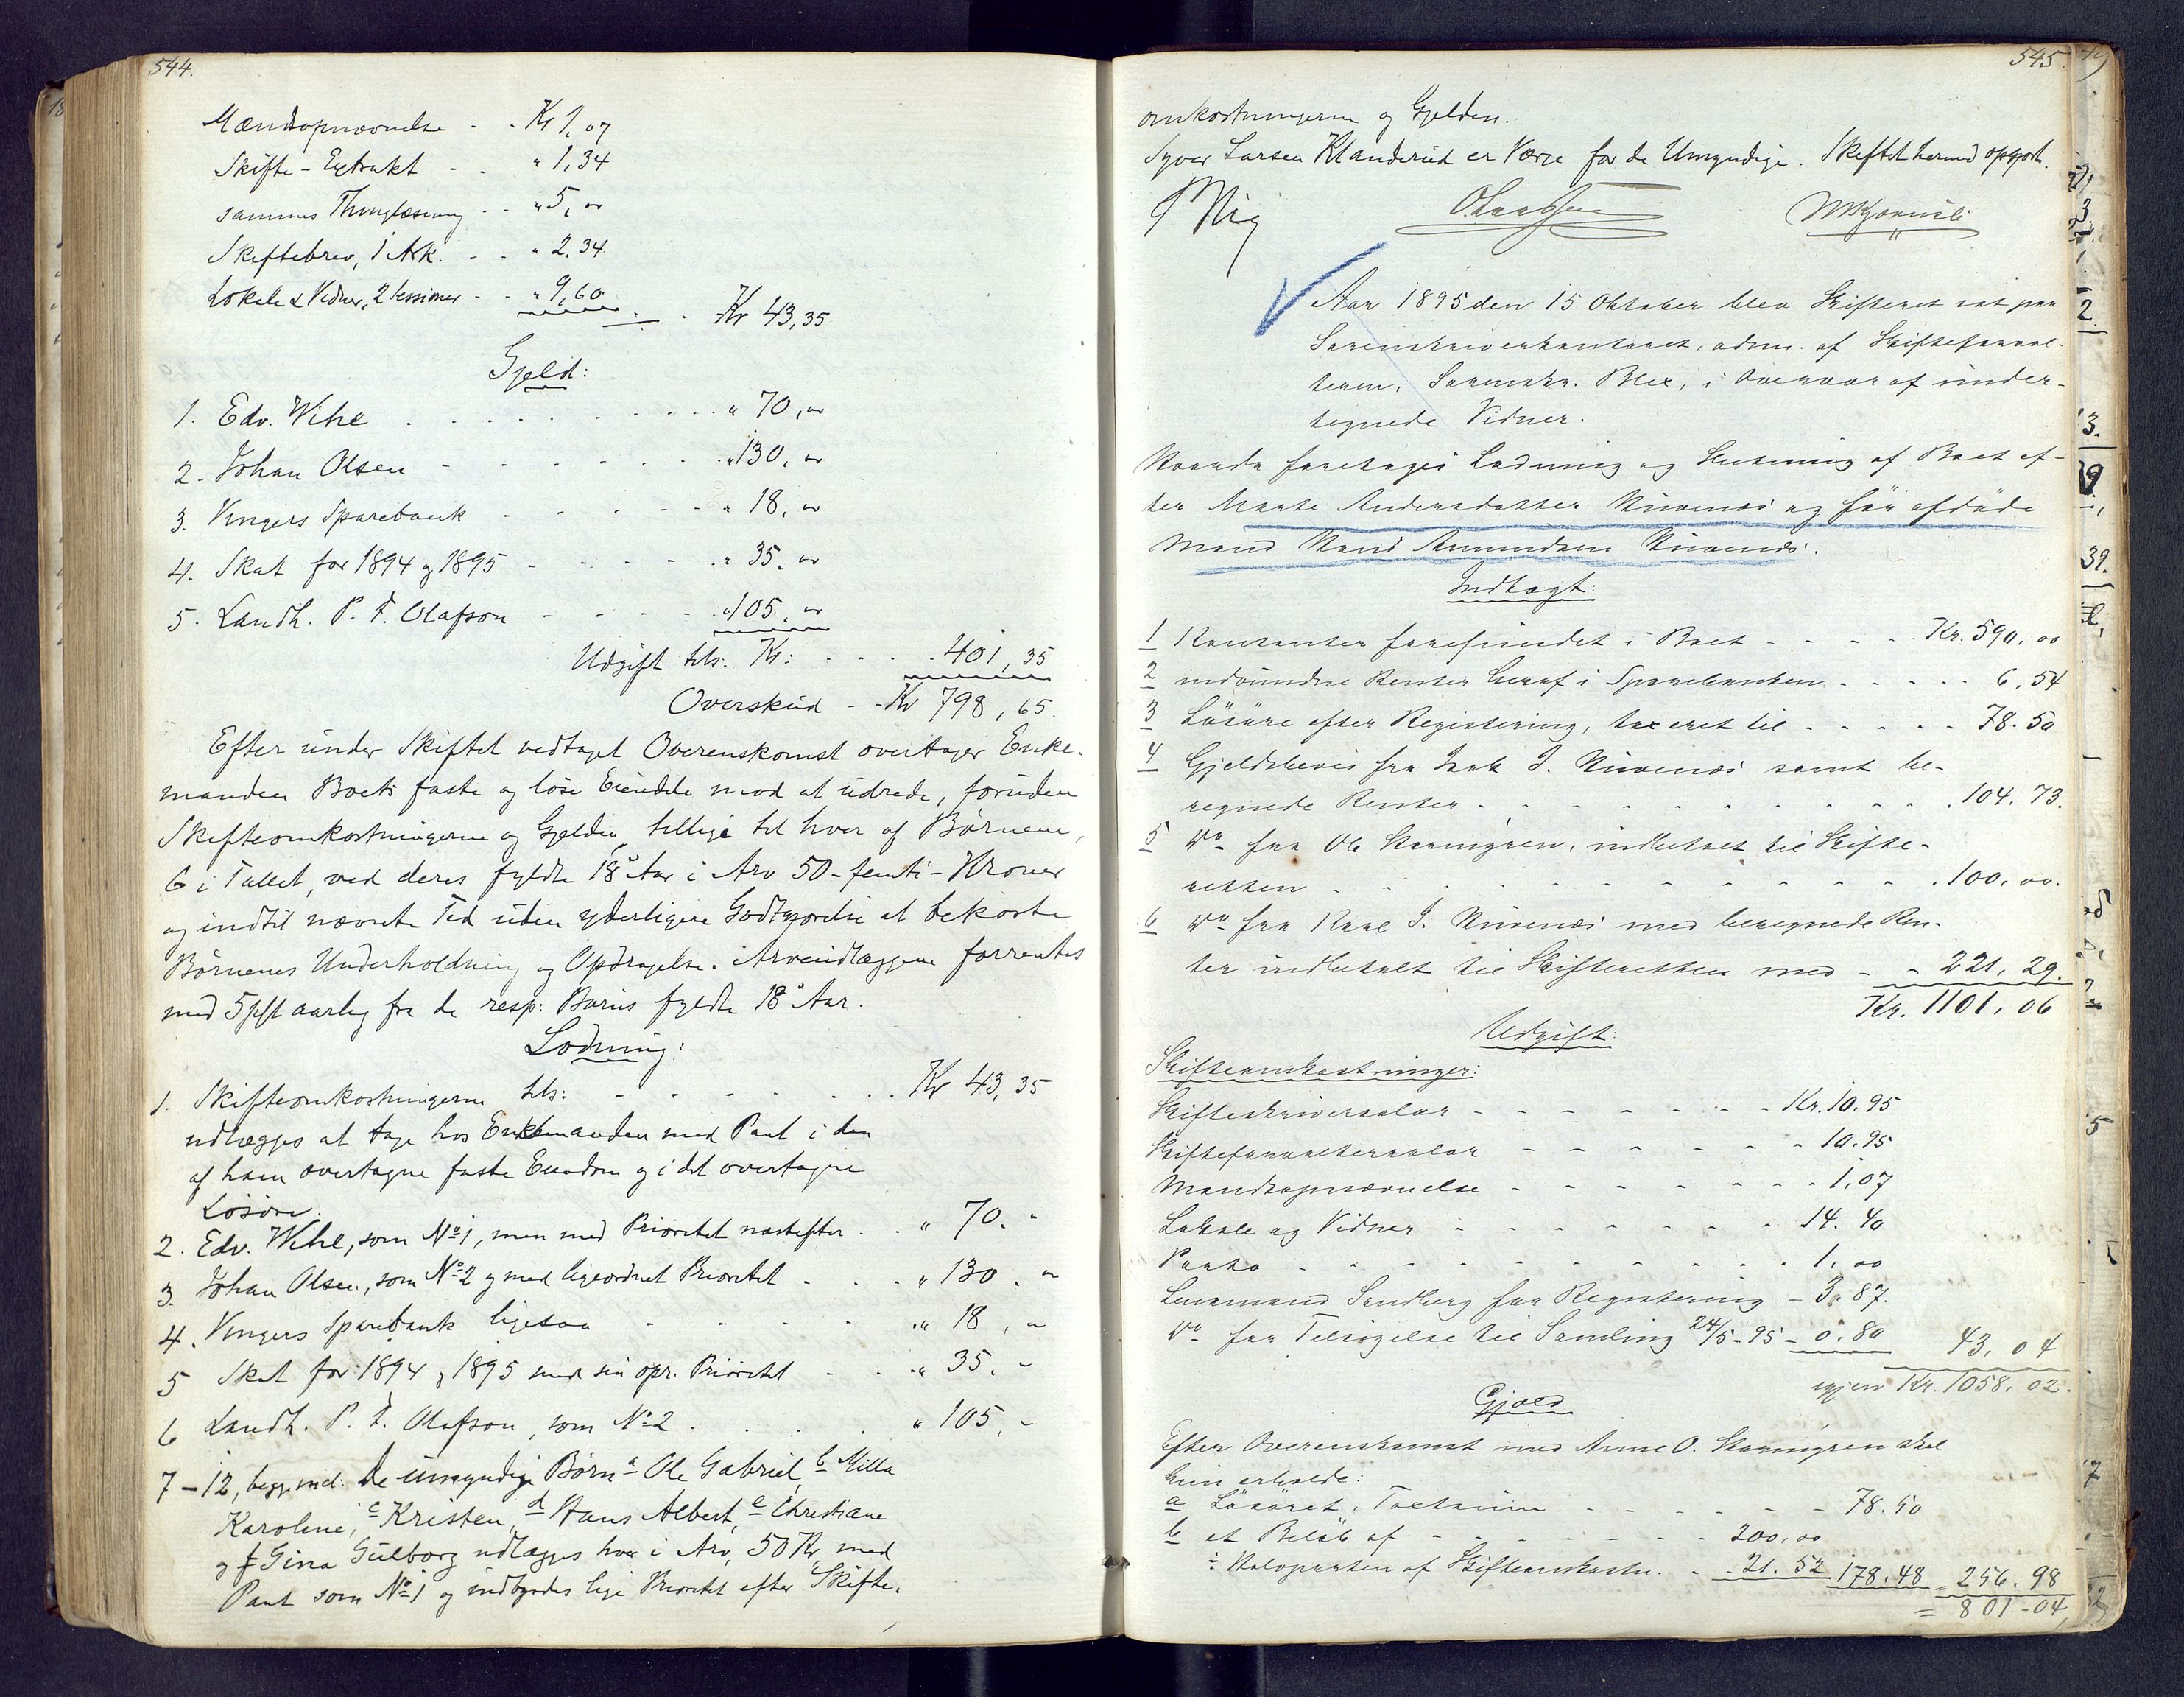 544.
Mændsopnævnelse - - Kr 1,07
Skifte-Extrakt - - " 1,34
sammes Thinglæsning - - " 5, "
Skiftebrev, 1 Ark. - - " 2.34
Lokale & Vidner, 2 Sessioner - - " 9,60 - - Kr 43,35
Gjeld:
1. Edv. Wihl - - - " 70, "
2. Johan Olsen - - - " 130, "
3. Vingers Sparebank - - - " 18, "
4. Skat for 1894 og 1895 - - - " 35, "
5. Landh. P. F. Olafson - - - " 105, "
Udgift tils: Kr: - - - 401,35
Overskud - - Kr 798,65.
Efter under Skiftet vedtaget Overenskomst overtager Enke-
manden Boets faste og løse Eiendele mod at udrede, foruden
Skifteomkostningerne og Gjelden, tillige til hver af Børnene,
6 i Tallet, ved deres fyldte 18de Aar i Arv 50-femti-Kroner
og indtil nævnte Tid uden yderligere Godtgjørelse at bekoste
Børnenes Underholdning og Opdragelse. Arveudlæggene forrentes
med 5 pCt aarlig fra de resp: Børns fyldte 18de Aar.
Lodning:
1. Skifteomkostningerne tils: - - - Kr 43,35
udlægges at tage hos Enkemanden med Pant i den
af ham overtagne faste Eiendom og i det overtagne
Løsøre.
2. Edv. Wihl, som No 1, men med Prioritet næstefter - - " 70. "
3. Johan Olsen, som No 2 og med ligeordnet Prioritet - - " 130. "
4. Vingers Sparebank ligesaa - - - " 18, "
5 Skat for 1894 og 1895 med sin opr. Prioritet - - " 35. "
6 Landh. P. F. Olafson, som No 2 - - - " 105, "
7-12, begge incl: De umyndige Børn a Ole Gabriel, b Milla
Karoline, c Kristen, d Hans Albert, e Christiane
og f Gina Gulborg udlægges hver i Arv, 50 Kr, med
Pant som No 1 og indbyrdes lige Prioritet efter Skifte-
545.
omkostningerne og Gjelden.
Syver Larsen Klanderud er Værge for de Umyndige. Skiftet hermed opgjort.
Aar 1895 den 15 Oktober blev Skifteret sat paa
Sorenskriverkontoret, adm. af Skifteforval-
teren, Sorenskr. Blex, i Overvær af under-
tegnede Vidner.
Hvorda foretoges Lodning og Slutning af Boet ef-
ter Marte Andersdatter Skivenes og før afdøde
Mand Hans Amundsen Skivenes.
Indtægt:
1 Kontanter forefundet i Boet - - - Kr. 590,00
2 indvundne Renter heraf i Sparebanken - - - 6.54
3 Løsøre efter Registering, taxeret til - - - 78.50
4 Gjeldsbevis fra J. Skivenes samt be-
regnede Renter - - - 104.73.
5 Do fra Ole Skaningren, indbetalt til Skifte-
retten - - - 100,00.
6 Do fra Karl J. Skivenes med beregnede Ren-
ter indbetalt til Skifteretten med - - 221,29.
Kr. 1101,06
Udgift:
Skifteomkostninger:
Skifteskriversalær - - - Kr. 10.95
Skifteforvaltersalær - - - 10.95
Mændsopnævnelse - - - 1,07
Lokale og Vidner - - - 14.40
Porto - - - 1,00
Lensmand Sandberg for Registering - 3.87.
Do for Tilsigelse til Samling 24/5-95 - 0.80 43,04
igjen Kr. 1058,02.
Gjæld
Efter Overenskomst med Anne O. Skaningren skal
hun erholde:
a Løsøret, Taxtsum - - - 78.50
b et Beløb af - - - 200,00
÷ Halvparten af Skifteomkostn. - - 21.52 178.48 = 256.98
= 801-04